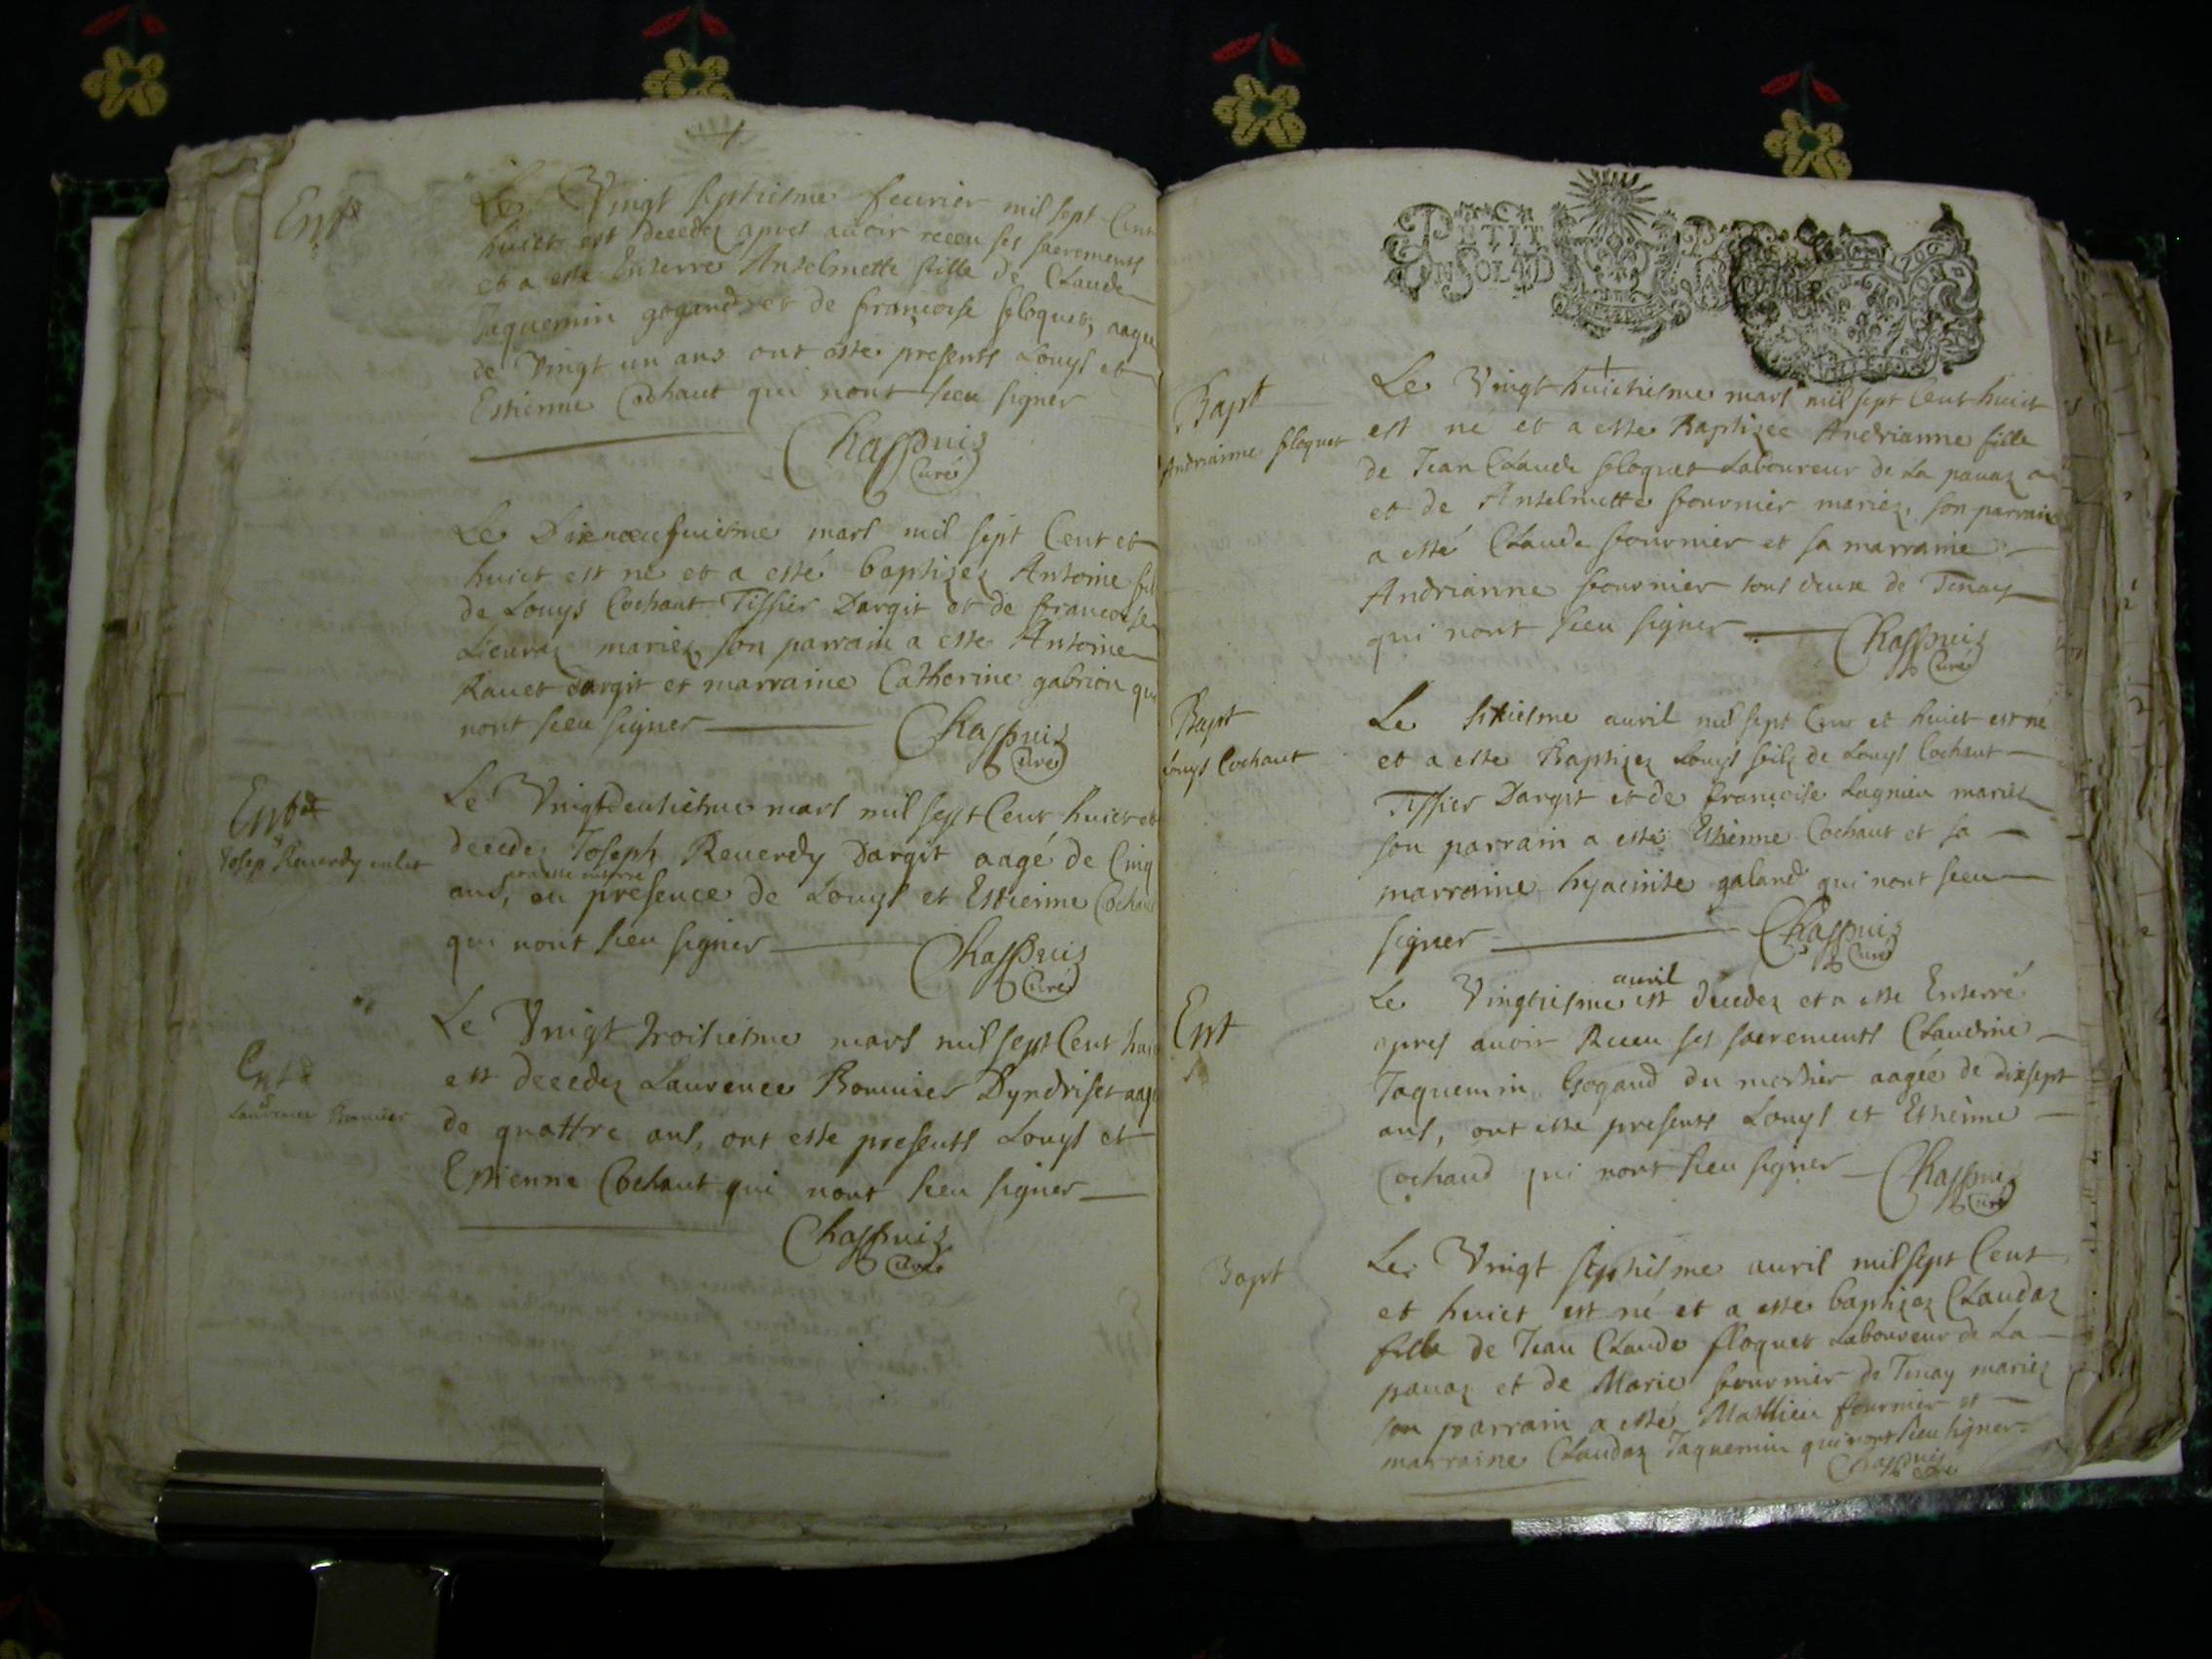 Ent
Le Vingt septiesme feurier mil sept Cent
huict est decedez apres auoir receu ses sacrements
et a esté Enterré Anselmette fille de Claude
Jaquemin gogand et de françoise floquet, aagee
de Vingt un ans ont esté presents Louys et
Estienne Cochaut qui nont sceu signer
Chappuis
Curé
Le Dixneufuiesme mars mil sept Cent et
huict est né et a esté baptisez Antoine fil
de Louys Cochaut Tissier Dargit et de francoise
Lieuraz mariez, son parrain a esté Antoine
Rauet dargit et marraine Catherine gabrion qui
nont sceu signer
Chappuis
Curé
Ent
Joseph Reuerdy enfet
Le Vingtdeusiesme mars mil sept Cent huict est
decedez Joseph Reuerdy Dargit aagé de Cinq
et a esté enterré
ans, en presence de Louys et Estienne Cochaut
qui nont sceu signer
Chappuis
Curé
Ent
Laurence Bonnier
Le Vingt troisiesme mars mil sept Cent huict
est decedez Laurence Bonnier Dyndriset aagé
de quattre ans, ont esté presents Louys et
Estienne Cochaut qui nont sceu signer
Chappuis
Curé
PETIT
UN SOL 4 D
Bapt
Andrianne floquet
Le Vingt huictiesme mars mil sept Cent huict
est né et a esté Baptizee Andrianne fille
de Jean Claude floquet Laboureur de La pauaz
et de Anselmette fournier mariez, son parrain
a esté Claude fournier et sa marraine
Andrianne fournier tout deux de Tenay
qui nont sceu signer
Chappuis
Curé
Bapt
Louys Cochaut
Le sixiesme auril mil sept Cent et huict est né
et a esté Baptizez Louys filz de Louys Cochaut
Tissier Dargit et de françoise Lagnieu mariez
son parrain a esté Estienne Cochaut et sa
marraine hyacinte galand qui nont sceu
signer
Chappuis
Curé
Ent
auril
Le Vingtiesme est decedez et a esté Enterré
apres auoir Receu ses sacrements Claudine
Jaquemin Gogand du mortier aagée de dixsept
ans, ont esté presents Louys et Estienne
Cochaud qui nont sceu signer
Chappuis
Curé
Bapt
Le Vingt septiesme auril mil sept Cent
et huict est né et a esté baptizez Claudaz
fille de Jean Claude floquet Laboureur de La
pauaz et de Marie fournier de Tenay mariez
son parrain a esté Matthieu fournier et
marraine Claudaz Jaquemin qui nont sceu signer
Chappuis
Curé